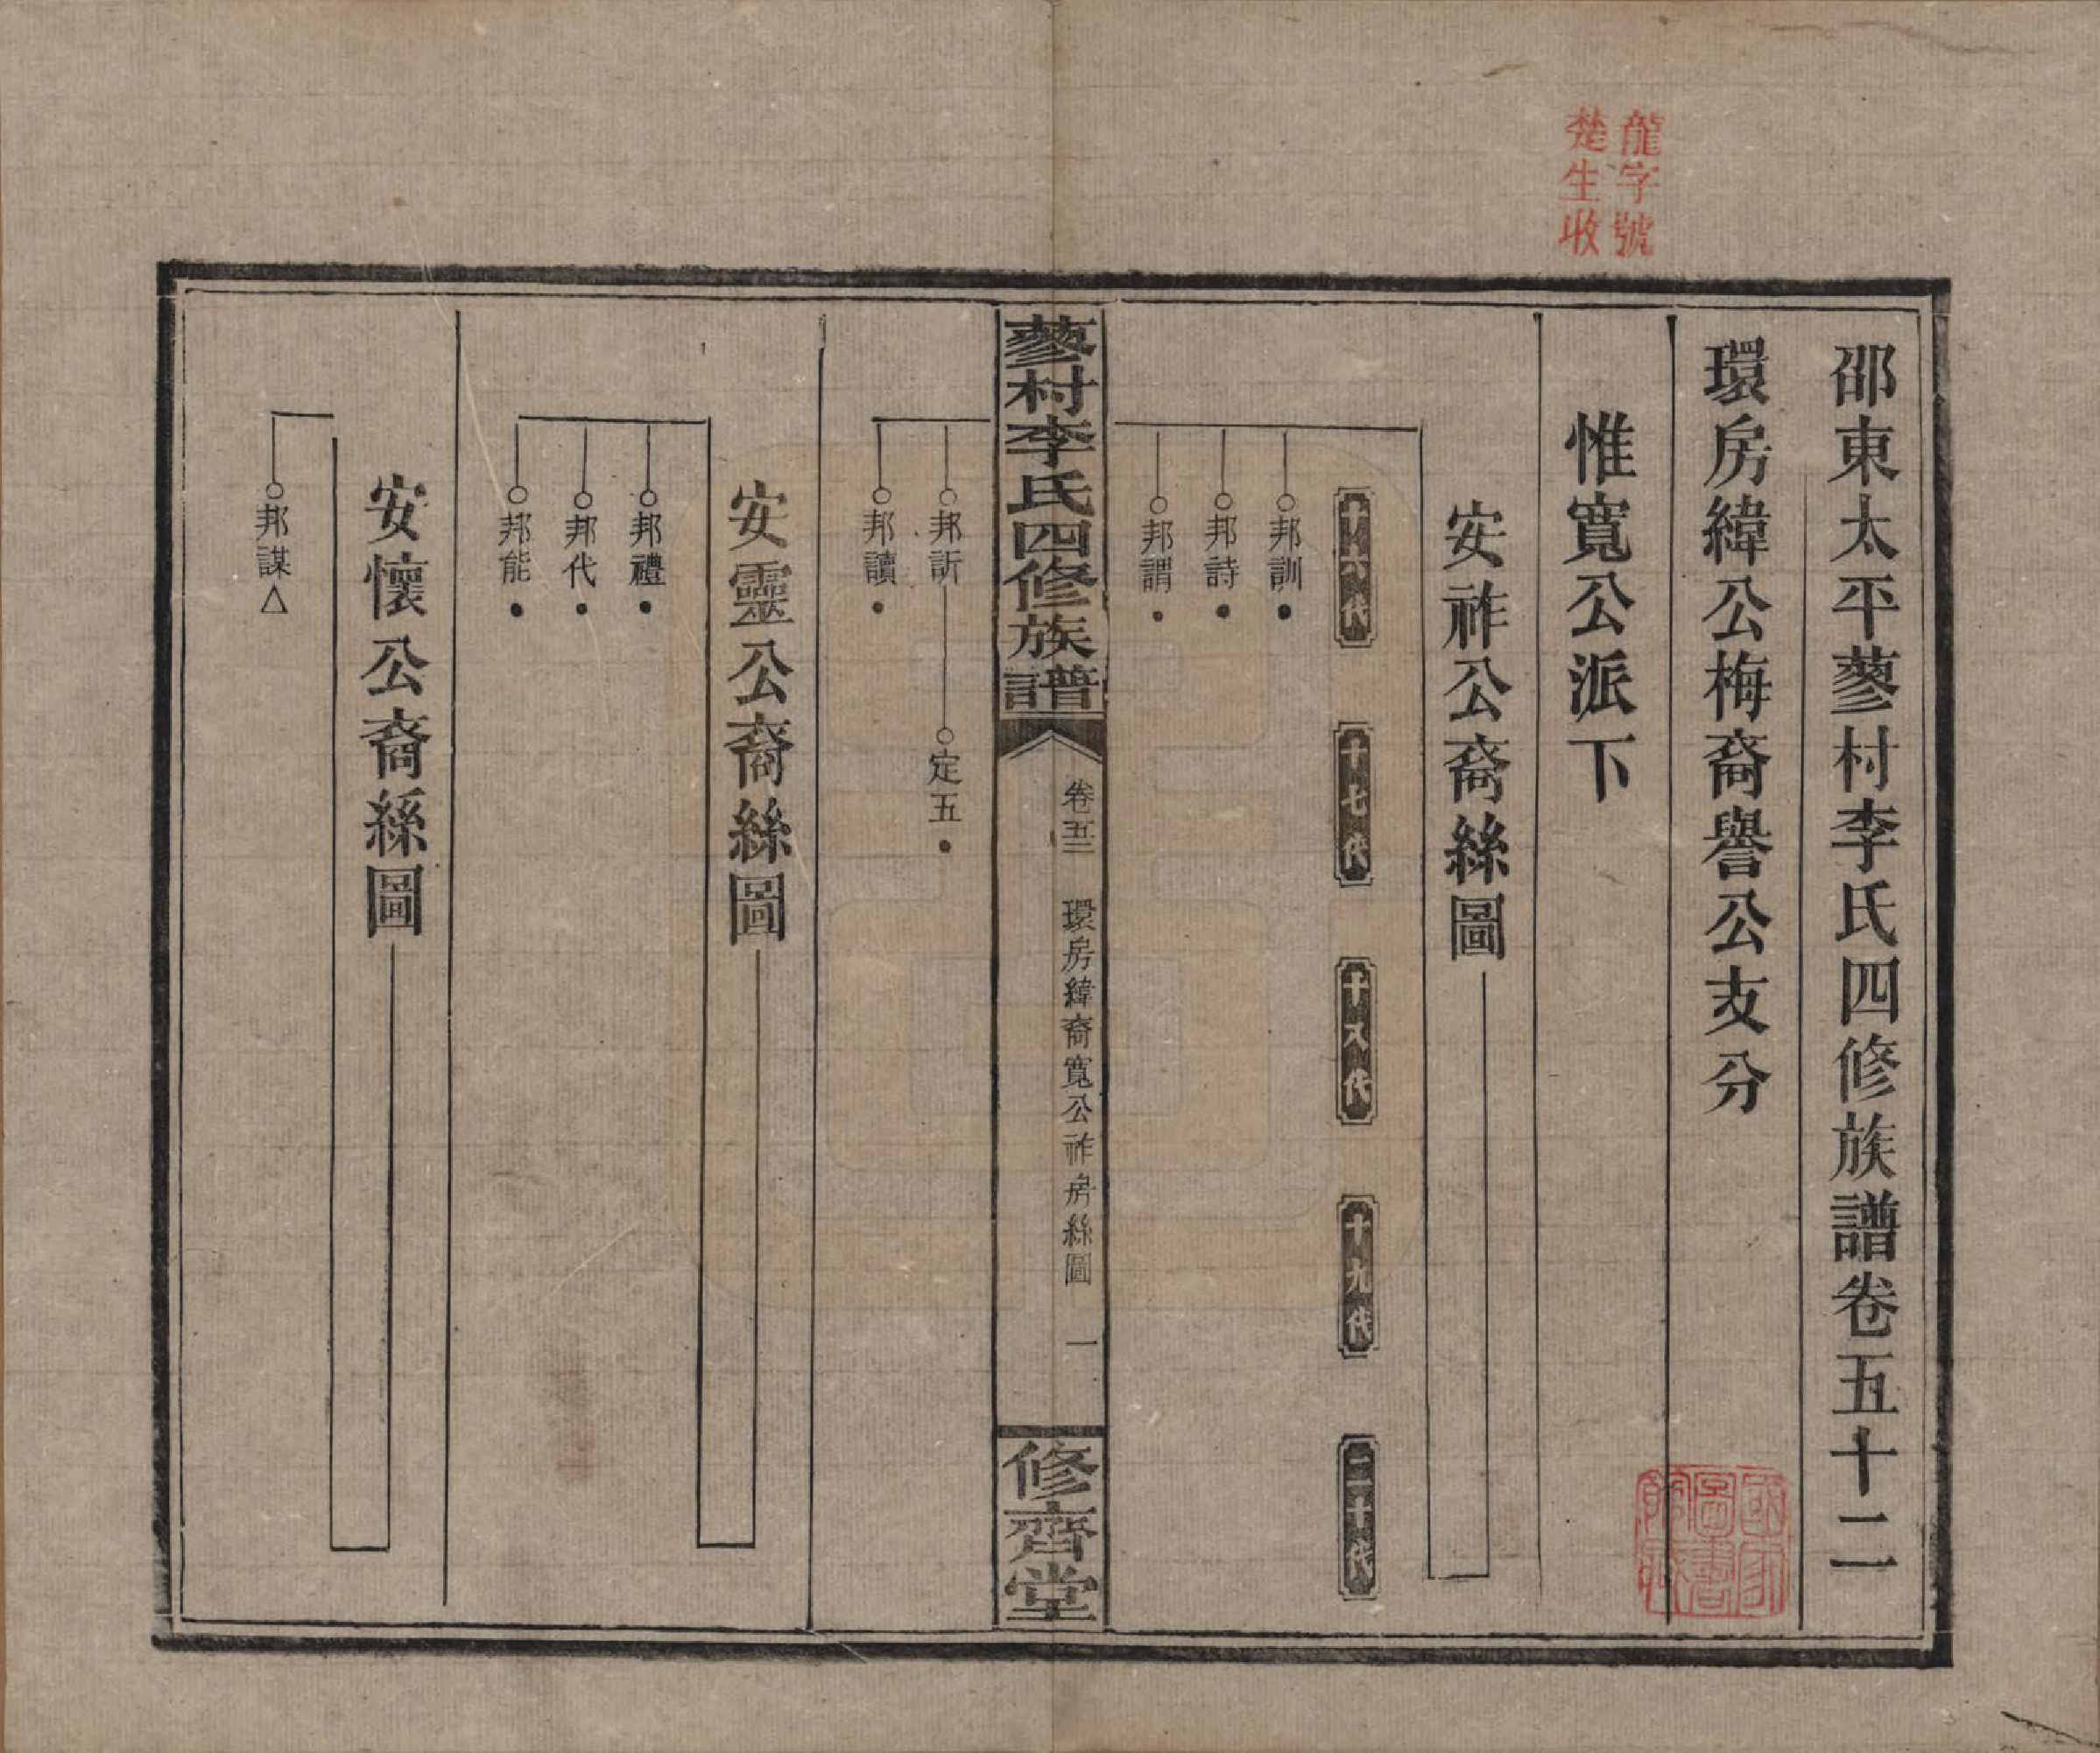 龍字號
楚生收
邵東太平蓼村李氏四修族譜卷五十二
環房緯公梅裔譽公支分
惟寬公派下
安祚公裔絲圖
十六代
十七代
十八代
十九代
二十代
邦訓
邦詩
邦謂
蓼村李氏四修族譜
卷五二
環房緯裔寬公祚房絲圖
一
修齊堂
邦訢
定五
邦讀
安靈公裔絲圖
邦禮
邦代
邦能
安懷公裔絲圖
邦謀
國家圖書館藏